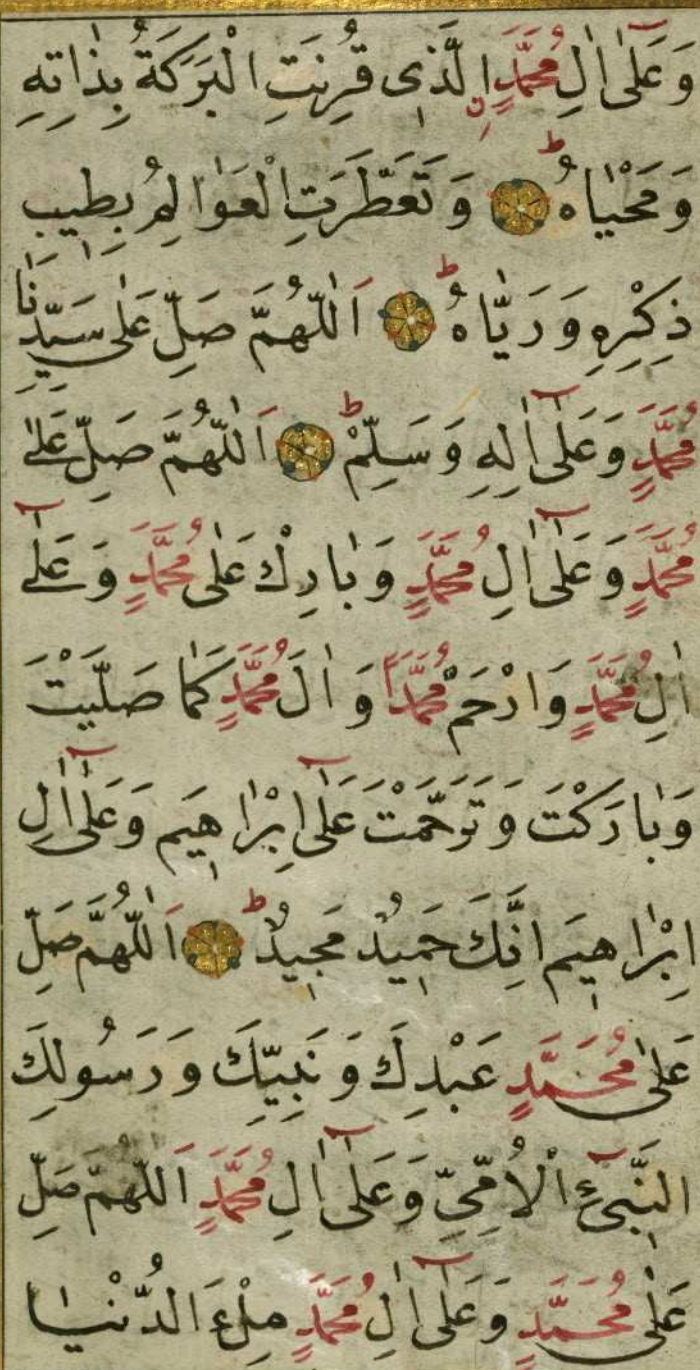 وَعَلٰٓى اٰلِ مُحَمَّدٍ ࣙالَّذٖى قُرِنَتِ الْبَرَكَةُ بِذَاتِهٖ
وَمَحْيَاهُ ؕ وَتَعَطَّرَتِ الْعَوَالِمُ بِطٖيبِ
ذِكْرِهٖ وَرَيَّاهُ ؕ اَللّٰهُمَّ صَلِّ عَلٰى سَيِّدِنَا
مُحَمَّدٍ وَعَلٰٓى اٰلِهٖ وَسَلِّمْ ؕ اَللّٰهُمَّ صَلِّ عَلٰى
مُحَمَّدٍ وَعَلٰٓى اٰلِ مُحَمَّدٍ وَبَارِكْ عَلٰى مُحَمَّدٍ وَعَلٰٓى
اٰلِ مُحَمَّدٍ وَارْحَمْ مُحَمَّدًا وَاٰلَ مُحَمَّدٍ كَمَا صَلَّيْتَ
وَبَارَكْتَ وَتَرَحَّمْتَ عَلٰٓى اِبْرٰاهٖيمَ وَعَلٰٓى اٰلِ
اِبْرٰاهٖيمَ اِنَّكَ حَمٖيدٌ مَجٖيدٌ ؕ اَللّٰهُمَّ صَلِّ
عَلٰى مُحَمَّدٍ عَبْدِكَ وَنَبِيِّكَ وَرَسُولِكَ
النَّبِىِّ الْاُمِّىِّ وَعَلٰٓى اٰلِ مُحَمَّدٍ اَللّٰهُمَّ صَلِّ
عَلٰى مُحَمَّدٍ وَعَلٰٓى اٰلِ مُحَمَّدٍ مِلْءَ الدُّنْيَا